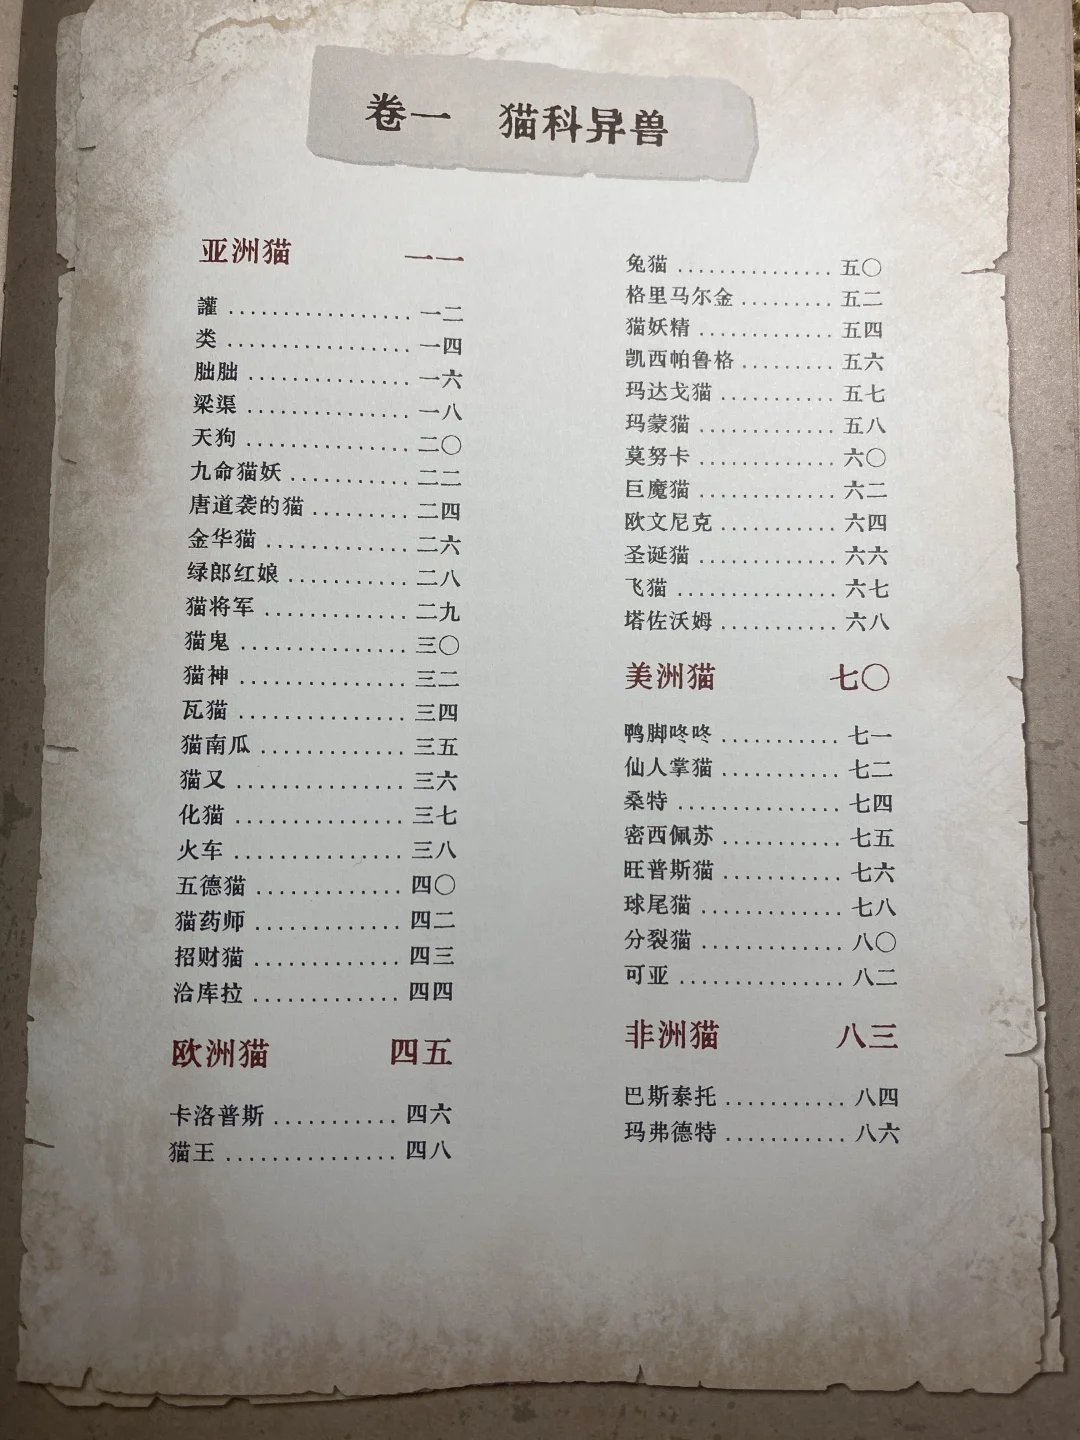 卷一 猫科异兽
亚洲猫 一一
讙 ................. 一二
类 ................. 一四
朏朏 ............... 一六
梁渠 ............... 一八
天狗 ............... 二〇
九命猫妖 ........... 二二
唐道袭的猫 ......... 二四
金华猫 ............. 二六
绿郎红娘 ........... 二八
猫将军 ............. 二九
猫鬼 ............... 三〇
猫神 ............... 三二
瓦猫 ............... 三四
猫南瓜 ............. 三五
猫又 ............... 三六
化猫 ............... 三七
火车 ............... 三八
五德猫 ............. 四〇
猫药师 ............. 四二
招财猫 ............. 四三
洽库拉 ............. 四四
欧洲猫 四五
卡洛普斯 ........... 四六
猫王 ............... 四八
兔猫 ............... 五〇
格里马尔金 ......... 五二
猫妖精 ............. 五四
凯西帕鲁格 ......... 五六
玛达戈猫 ........... 五七
玛蒙猫 ............. 五八
莫努卡 ............. 六〇
巨魔猫 ............. 六二
欧文尼克 ........... 六四
圣诞猫 ............. 六六
飞猫 ............... 六七
塔佐沃姆 ........... 六八
美洲猫 七〇
鸭脚咚咚 ........... 七一
仙人掌猫 ........... 七二
桑特 ............... 七四
密西佩苏 ........... 七五
旺普斯猫 ........... 七六
球尾猫 ............. 七八
分裂猫 ............. 八〇
可亚 ............... 八二
非洲猫 八三
巴斯泰托 ........... 八四
玛弗德特 ........... 八六